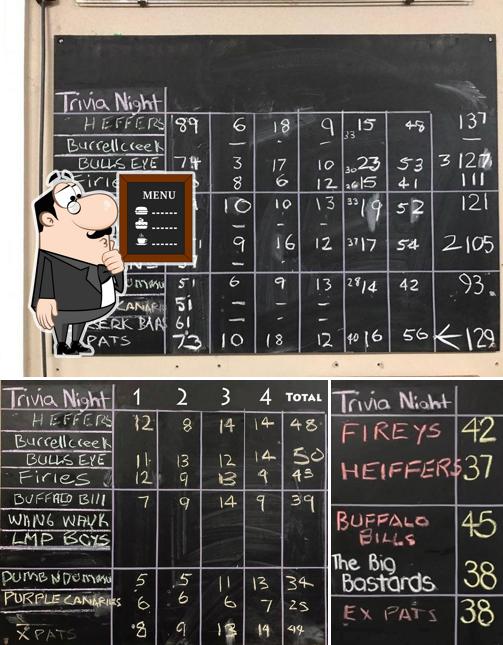 Trivia Night
HEFFERS 89 6 18 9 33 15 48 137
Burrellcreek — — —
BULLS EYE 74 3 17 10 30 23 53 3 127
Firie 8 6 12 26 15 41 111
10 10 13 33 19 52 121
— —
9 16 12 37 17 54 2 105
— — —
51 6 9 13 28 14 42 93
CANARIE 51 — — —
SERK BAR 61 — — —
PATS 73 10 18 12 40 16 56 129
MENU
Trivia Night 1 2 3 4 TOTAL
HEFFERS 12 8 14 14 48
Burrellcreek
BULLS EYE 11 13 12 14 50
Firies 12 9 13 9 43
BUFFALO Bill 7 9 14 9 39
WANG WAUK
LMP BOYS
DUMB N DUMM 5 5 11 13 34
PURPLE CANARIES 6 6 6 7 25
X PATS 8 9 13 14 44
Trivia Night
FIREYS 42
HEIFFERS 37
BUFFALO 45
BILLS
The Big
Bastards 38
EX PATS 38